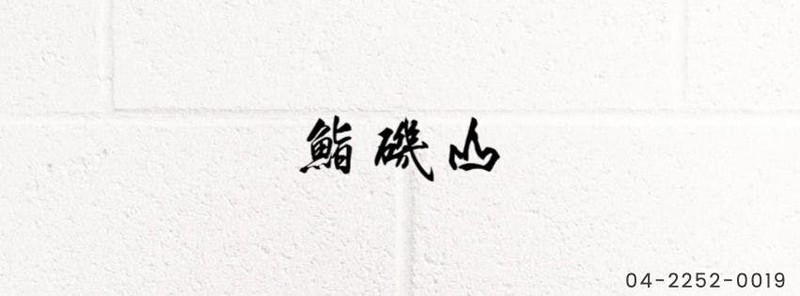 鮨磯山
04-2252-0019